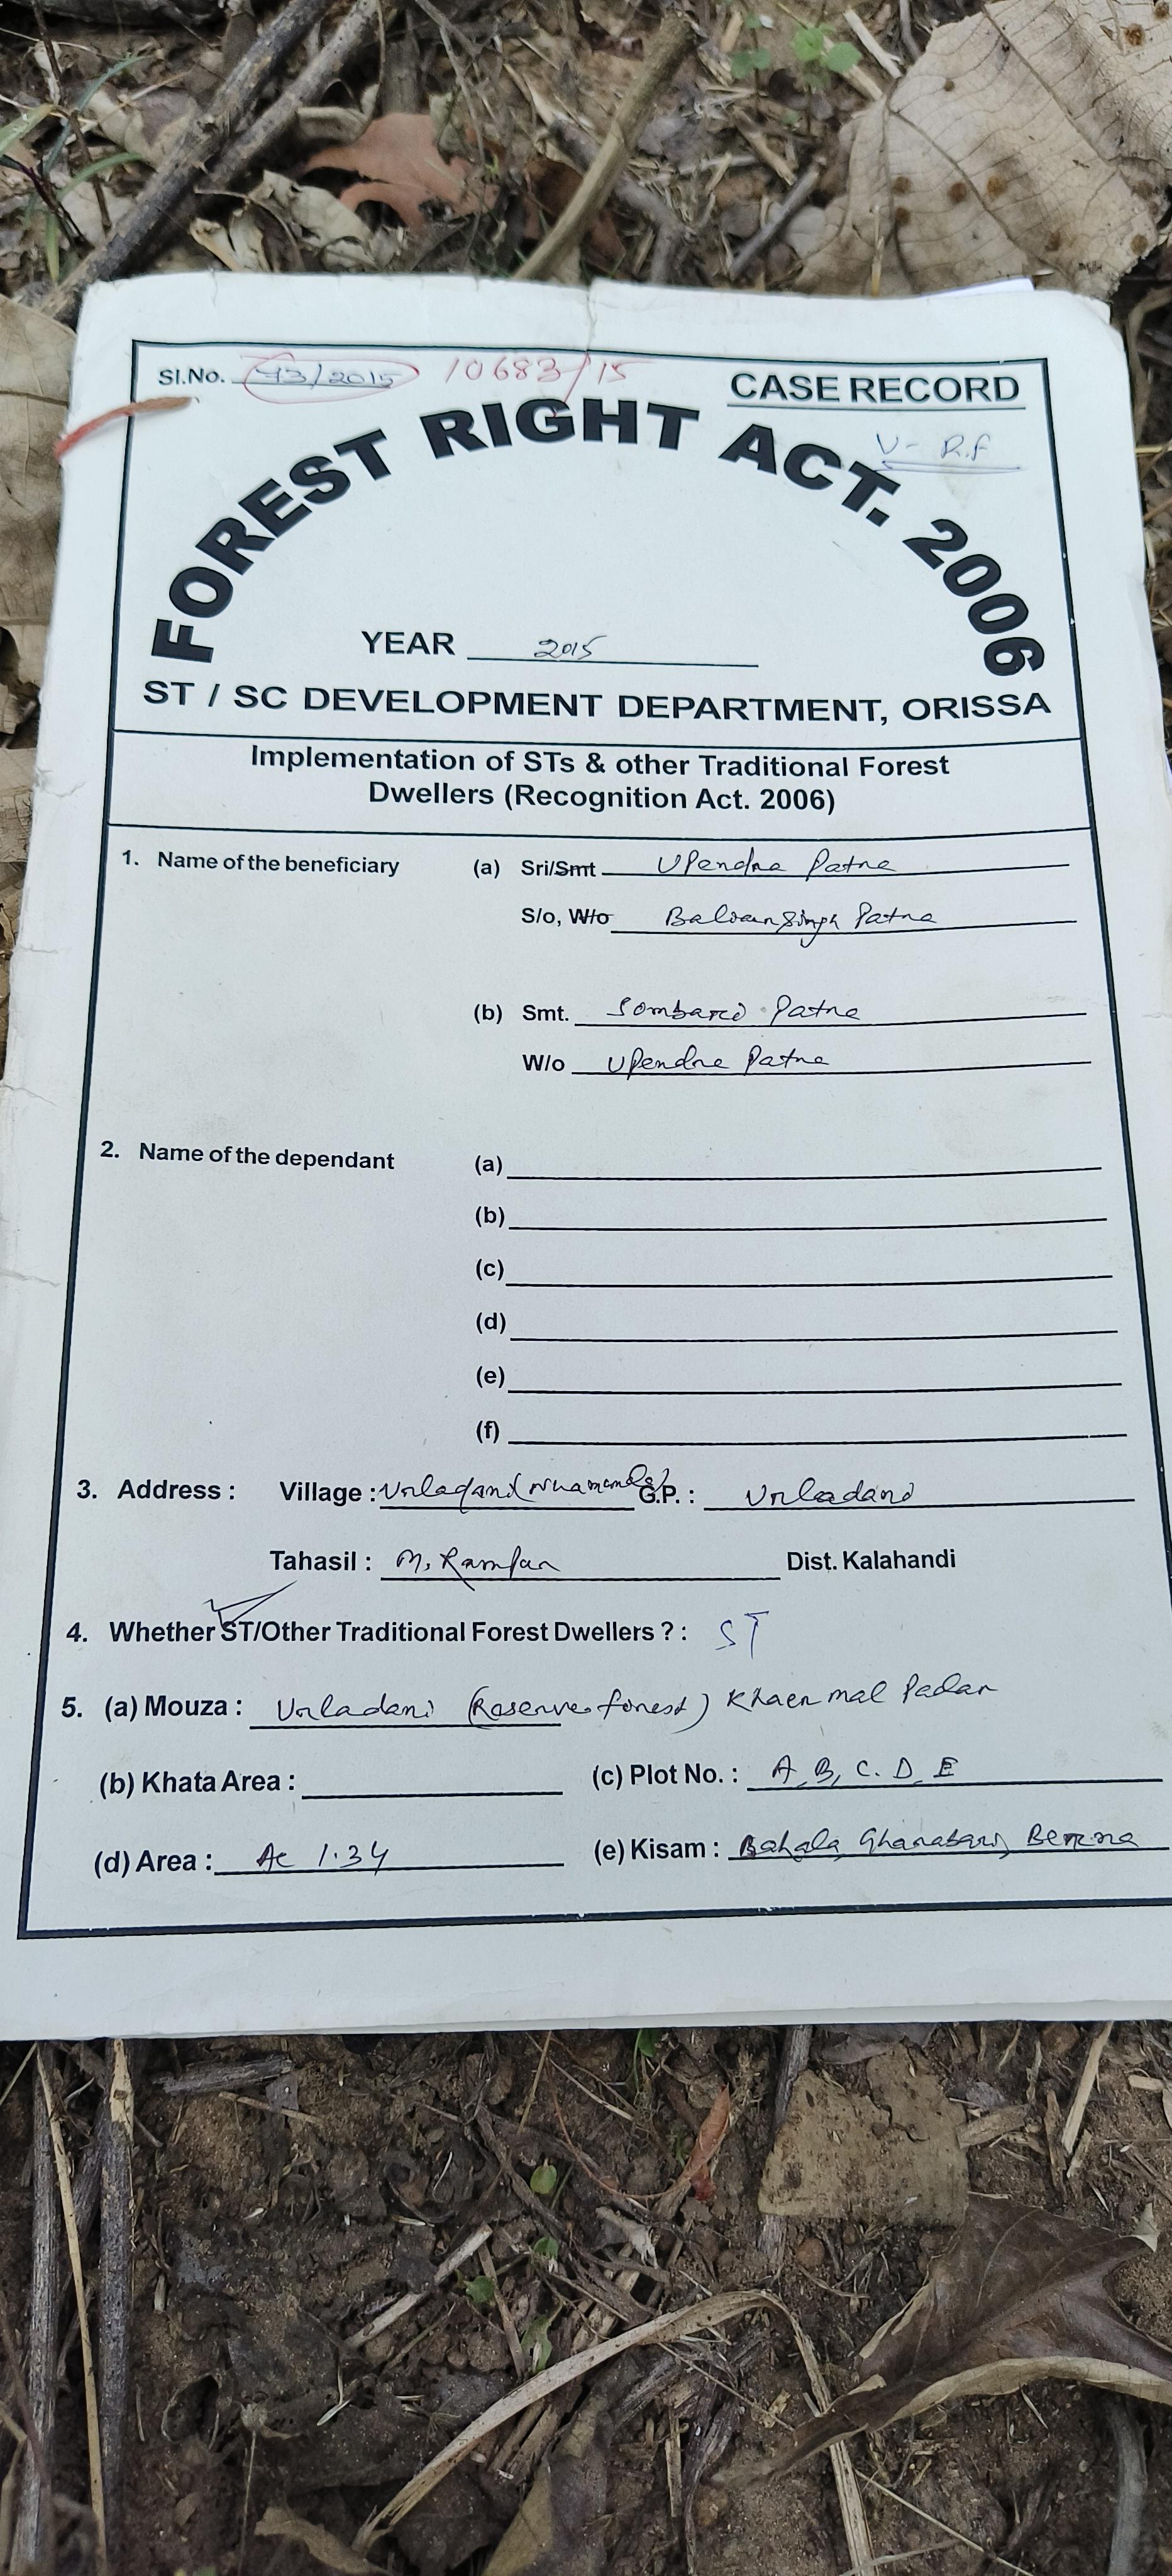 Sl.No. 43/2015 10683/15
CASE RECORD
V- R.F
FOREST RIGHT ACT. 2006
YEAR 2015
ST / SC DEVELOPMENT DEPARTMENT, ORISSA
Implementation of STs & other Traditional Forest
Dwellers (Recognition Act. 2006)
1. Name of the beneficiary (a) Sri/Smt Upendra Patra
S/o, W/o Patra
(b) Smt. Sombaro Patra
W/o Upendra Patra
2. Name of the dependant (a)
(b)
(c)
(d)
(e)
(f)
3. Address : Village : Urladani G.P. : Urladani
Tahasil : M. Rampur Dist. Kalahandi
4. Whether ST/Other Traditional Forest Dwellers ? : ST
5. (a) Mouza : Urladani (Reserve forest) Khaer mal Padar
(b) Khata Area : (c) Plot No. : A, B, C. D, E
(d) Area : Ac 1.34 (e) Kisam : Bahala, Gharabari, Berna